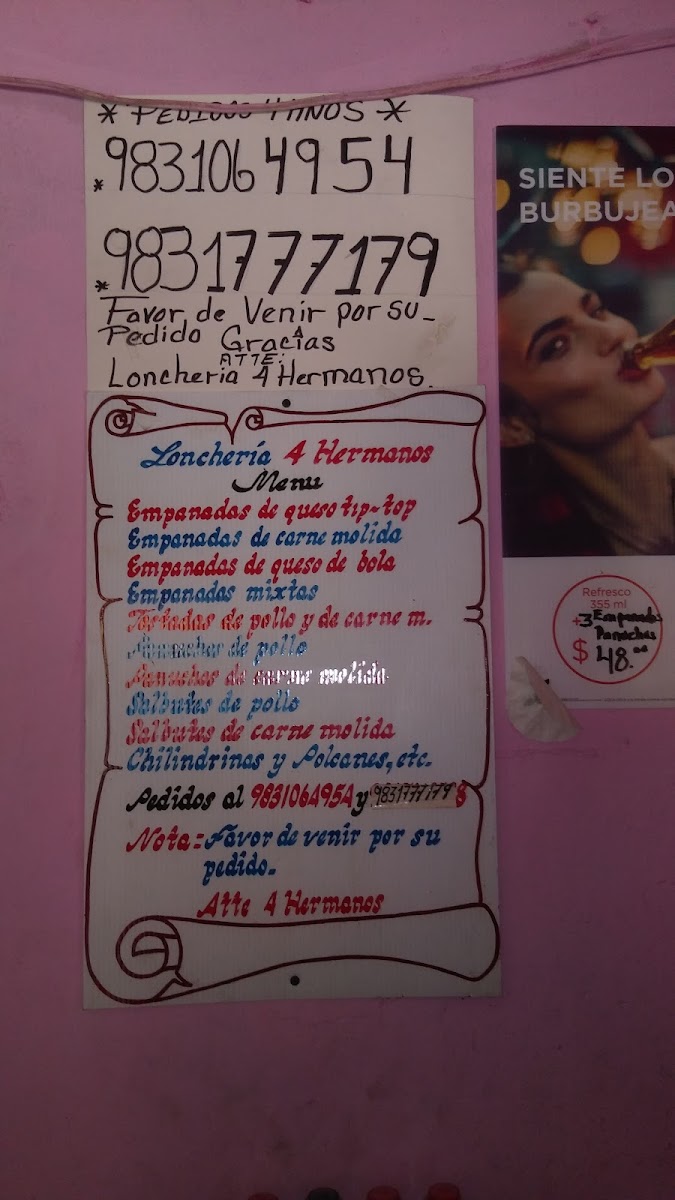 * PEDIDOS 4 HNOS *
* 9831064954
* 9831777179
Favor de Venir por su_
Pedido Gracias
ATTE:
Loncheria 4 Hermanos.
Lonchería 4 Hermanos
Menu
Empanadas de queso tip-top
Empanadas de carne molida
Empanadas de queso de bola
Empanadas mixtas
Tostadas de pollo y de carne m.
Panuchos de pollo
Panuchos de carne molida
Salbutes de pollo
Salbutes de carne molida
Chilindrinas y Polcanes, etc.
Pedidos al 9831064954 y 9831777179
Nota = Favor de venir por su
pedido.
Atte 4 Hermanos
SIENTE LO
BURBUJEA
Refresco
355 ml
+3 Empanadas
Panuchos
$ 48.00